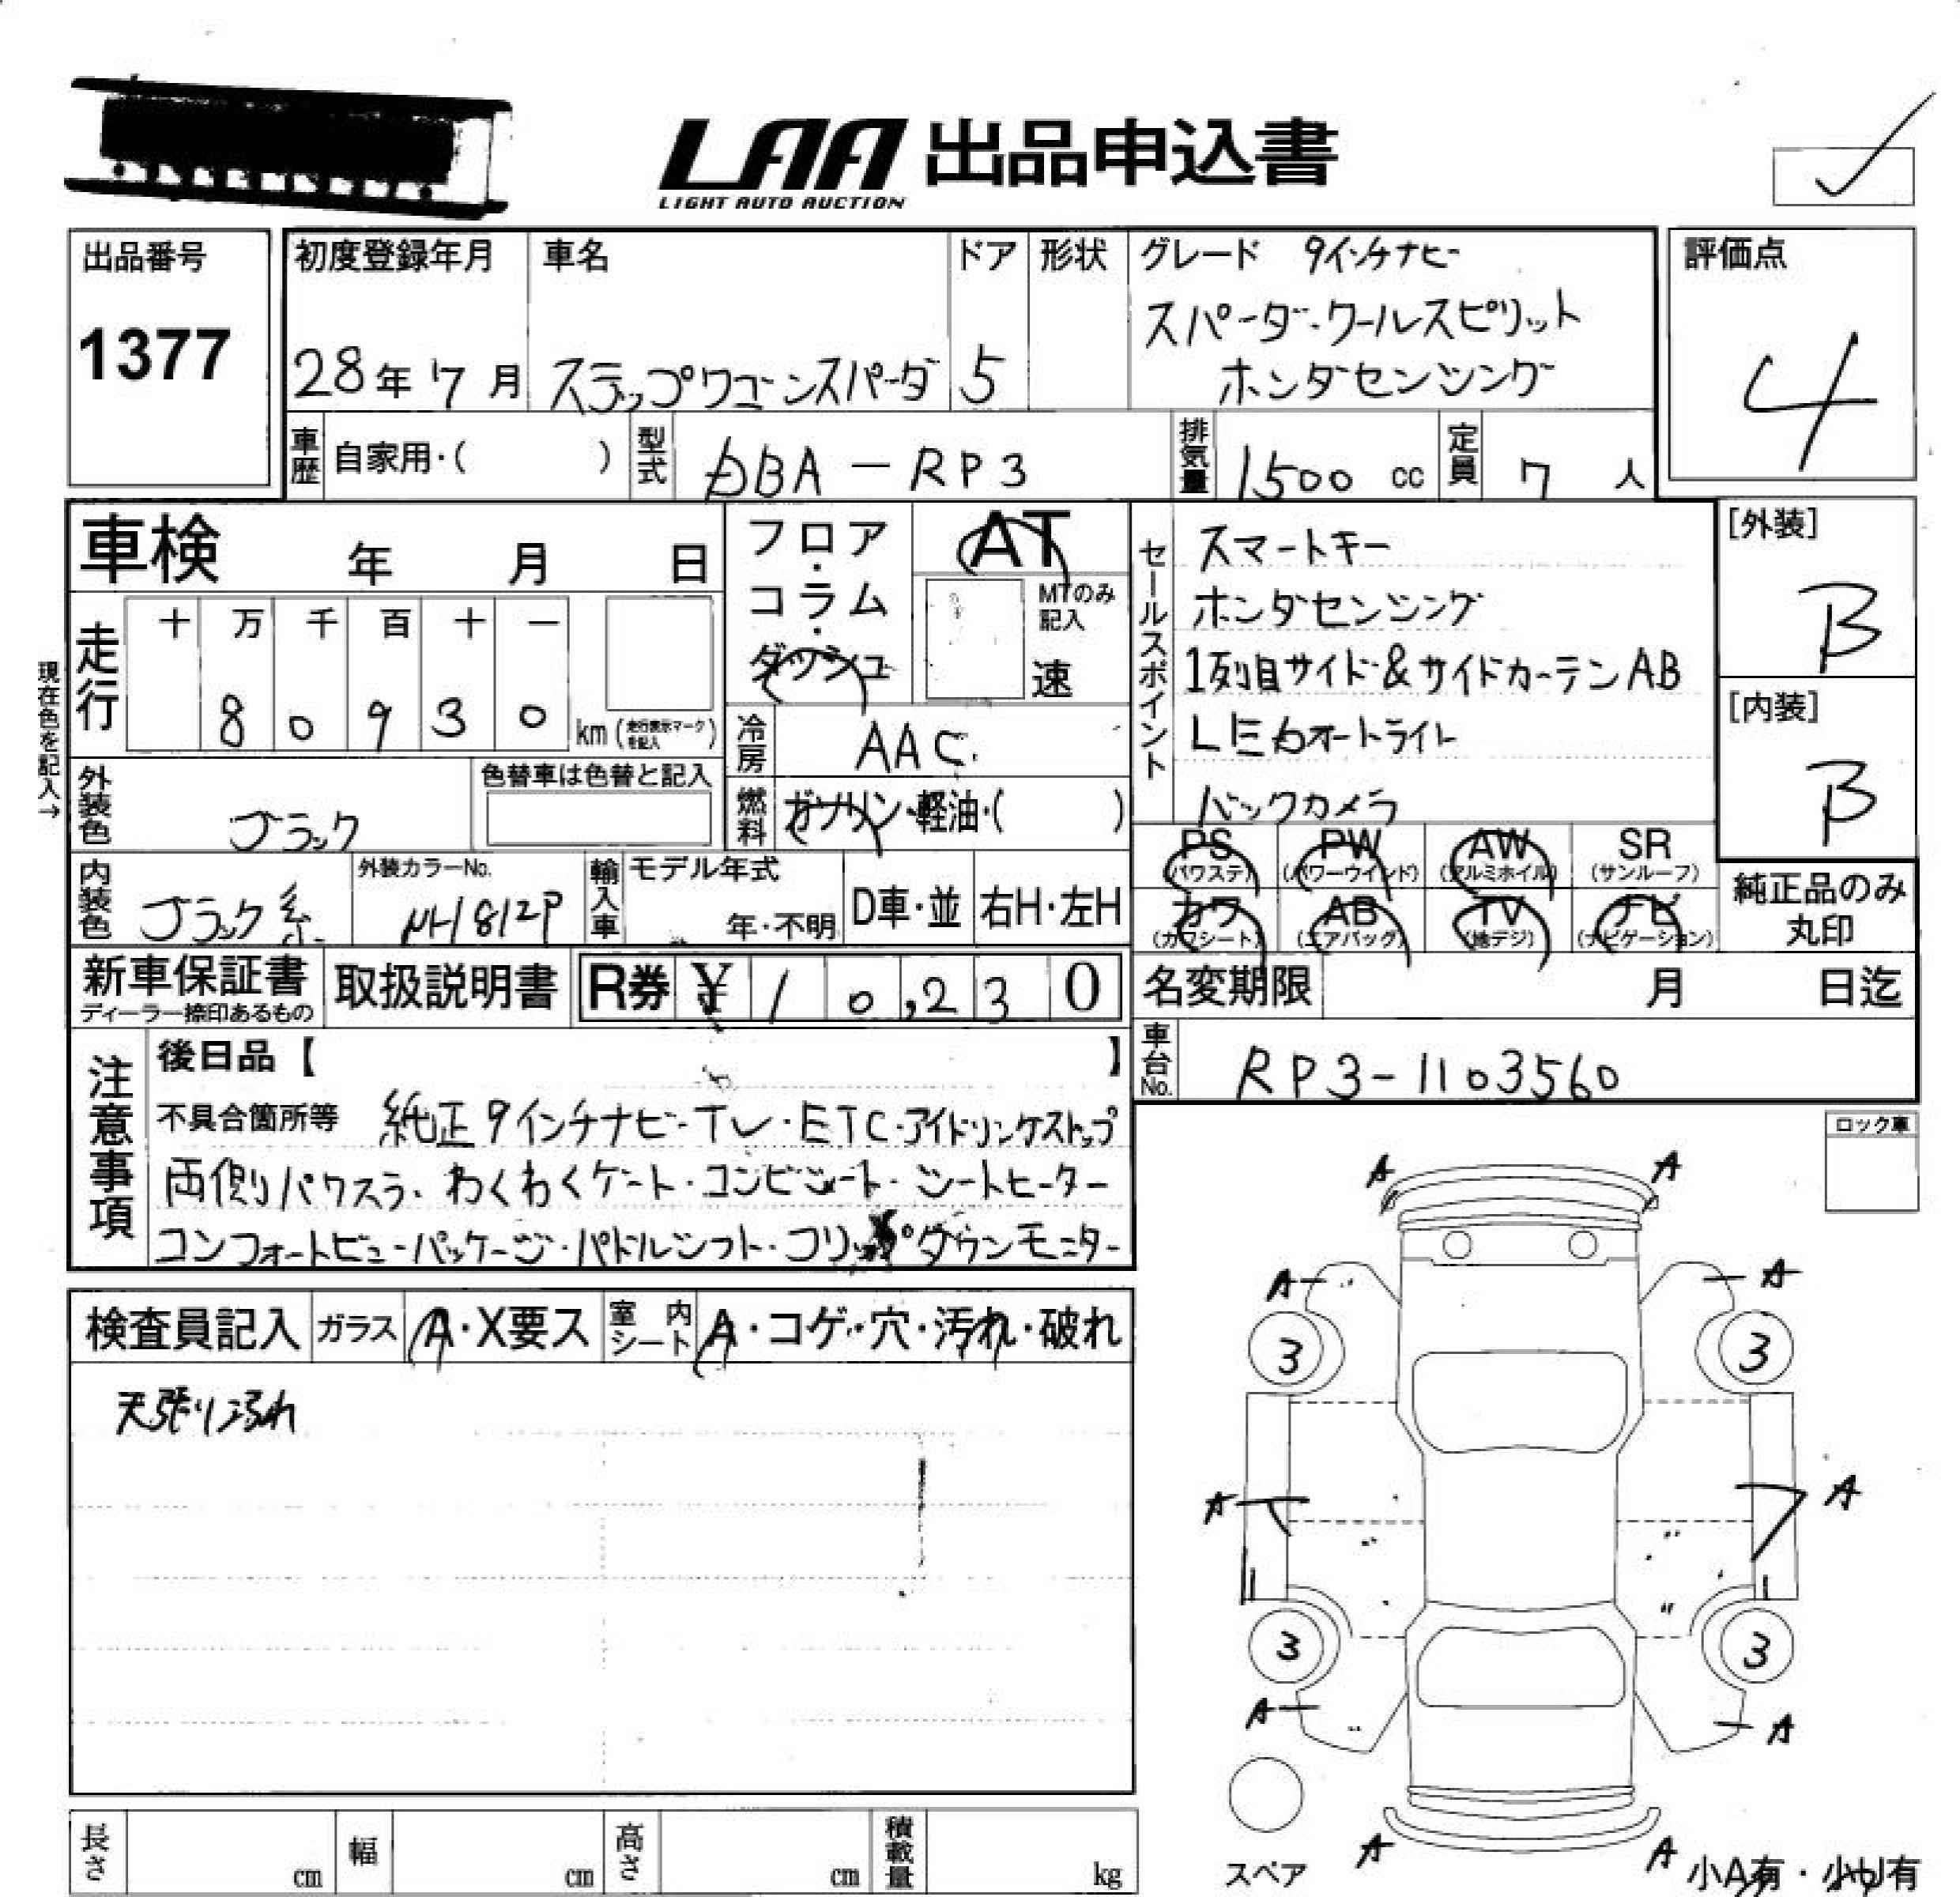 LAA 出品申込書
LIGHT AUTO AUCTION
出品番号
1377
初度登録年月
28年7月
車名
ステップワゴンスパーダ
ドア
5
形状
グレード 9インチナビ
スパーダ・クールスピリット
ホンダセンシング
評価点
4
車歴 自家用・( )
型式 DBA-RP3
排気量 1500 cc
定員 7 人
車検 年 月 日
フロア・コラム・ダッシュ
AT
MTのみ記入
速
セールスポイント
スマートキー
ホンダセンシング
1列目サイド&サイドカーテンAB
LEDオートライト
バックカメラ
[外装]
B
[内装]
B
現在色を記入→
走行 十 万 千 百 十 一
8 0 9 3 0 km (走行表示マークを記入)
冷房 AAC
燃料 ガソリン・軽油・( )
外装色 ブラック
色替車は色替と記入
PS (パワステ) PW (パワーウインド) AW (アルミホイル) SR (サンルーフ)
カワ (カワシート) AB (エアバッグ) TV (地デジ) ナビ (ナビゲーション)
純正品のみ丸印
内装色 ブラック系
外装カラーNo. NH812P
輸入車 モデル年式 年・不明 D車・並 右H・左H
新車保証書
ディーラー捺印あるもの
取扱説明書
R券 ¥ 1 0,2 3 0
名変期限 月 日迄
車台No. RP3-1103560
注意事項
後日品【 】
不具合箇所等 純正9インチナビ・TV・ETC・アイドリングストップ
両側パワスラ・わくわくゲート・コンビシート・シートヒーター
コンフォートビューパッケージ・パドルシフト・フリップダウンモニター
ロック車
検査員記入 ガラス A・X要ス 室内シート A・コゲ・穴・汚れ・破れ
天張り汚れ
A A
A A
3 3
A A
3 3
A A
スペア
A A
小A有・小U有
長さ cm 幅 cm 高さ cm 積載量 kg